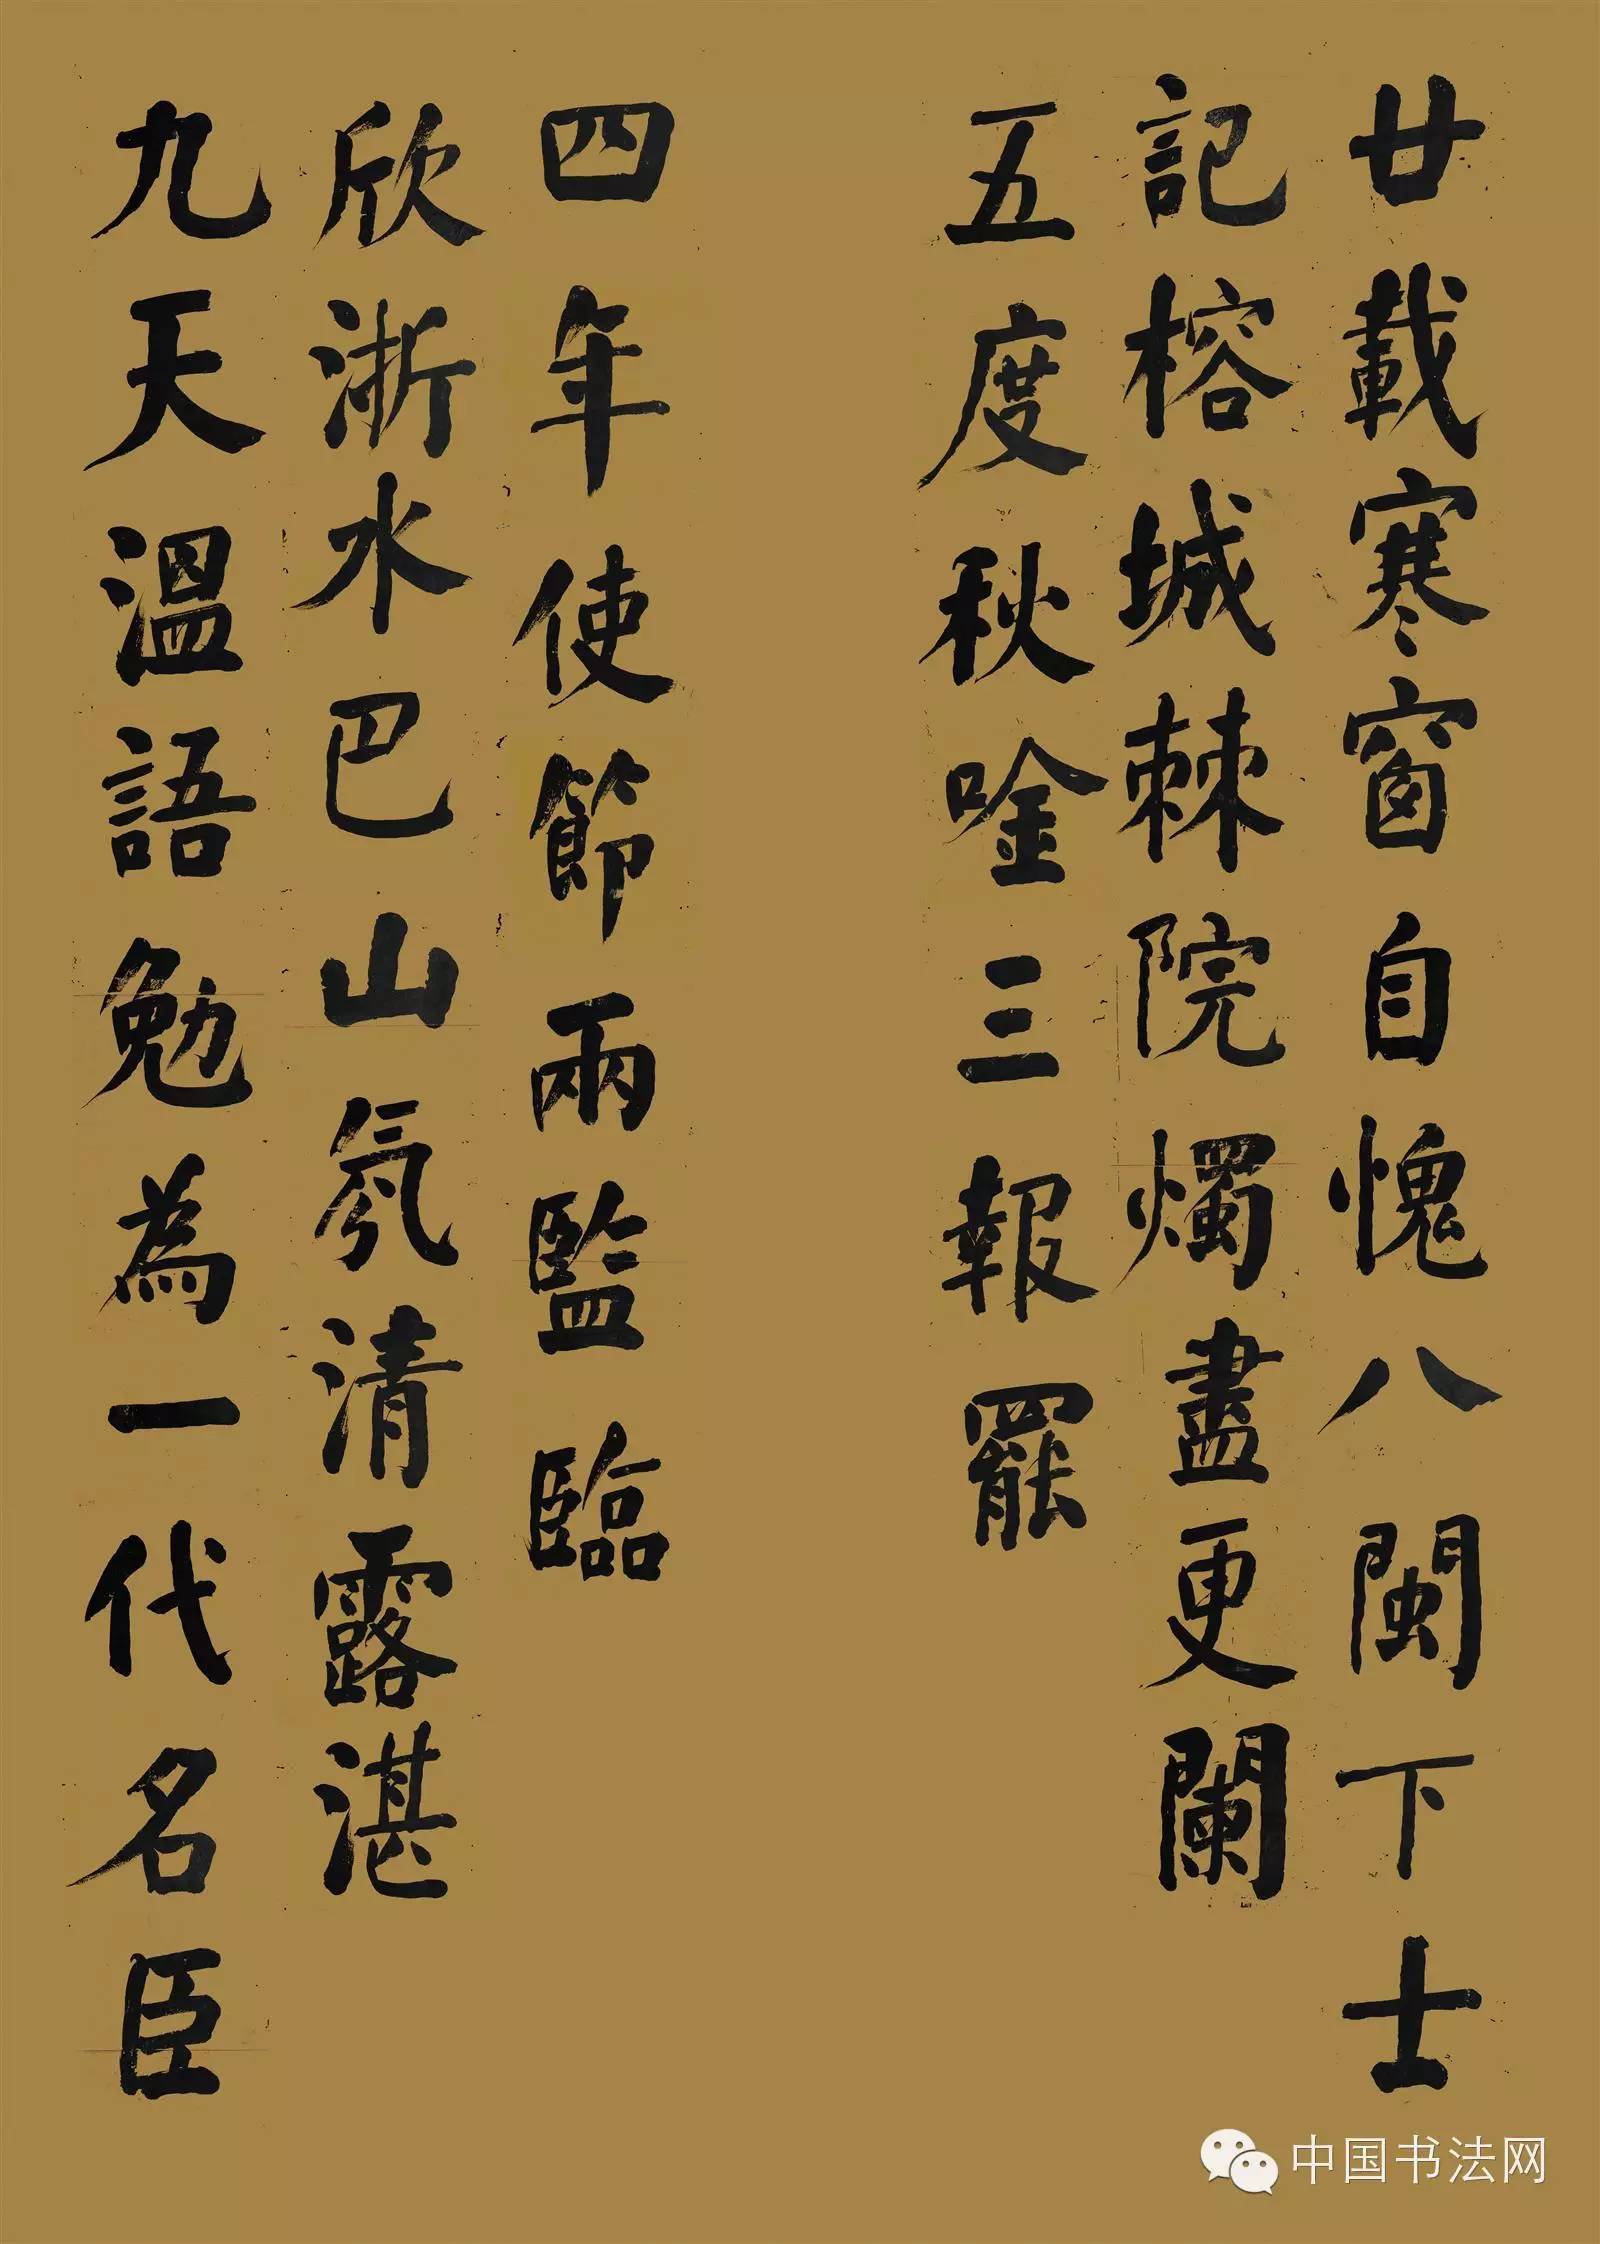 廿載寒窗自愧八閩下士
記榕城棘院燭盡更闌
五度秋唫三報罷
四年使節兩監臨
欣浙水巴山氛清露湛
九天溫語勉為一代名臣
中国书法网